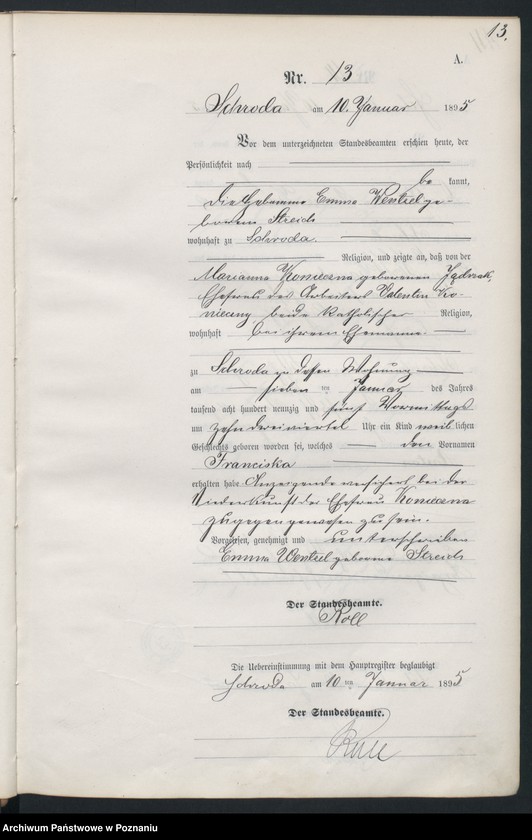 13.
A.
Nr. 13
Schroda am 10. Januar 1895
Vor dem unterzeichneten Standesbeamten erschien heute, der
Persönlichkeit nach
be kannt,
die Hebamme Emma Wentzel ge-
borene Streich
wohnhaft zu Schroda.
Religion, und zeigte an, daß von der
Marianna Konieczna geborenen
Ehefrau des Arbeiters Valentin Ko-
nieczny beide katholischer Religion,
wohnhaft bei ihrem Ehemanne
zu Schroda in dessen Wohnung
am sieben ten Januar des Jahres
tausend acht hundert neunzig und fünf Vormittags
um zehn dreiviertel Uhr ein Kind weib lichen
Geschlechts geboren worden sei, welches den Vornamen
Franciska
erhalten habe. Anzeigende versichert bei der
Niederkunft der Ehefrau Konieczna
zugegen gewesen zu sein.
Vorgelesen, genehmigt und unterschrieben
Emma Wentzel geborene Streich
Der Standesbeamte.
Roll
Die Uebereinstimmung mit dem Hauptregister beglaubigt
Schroda am 10 ten Januar 1895
Der Standesbeamte.
Roll
Archiwum Państwowe w Poznaniu